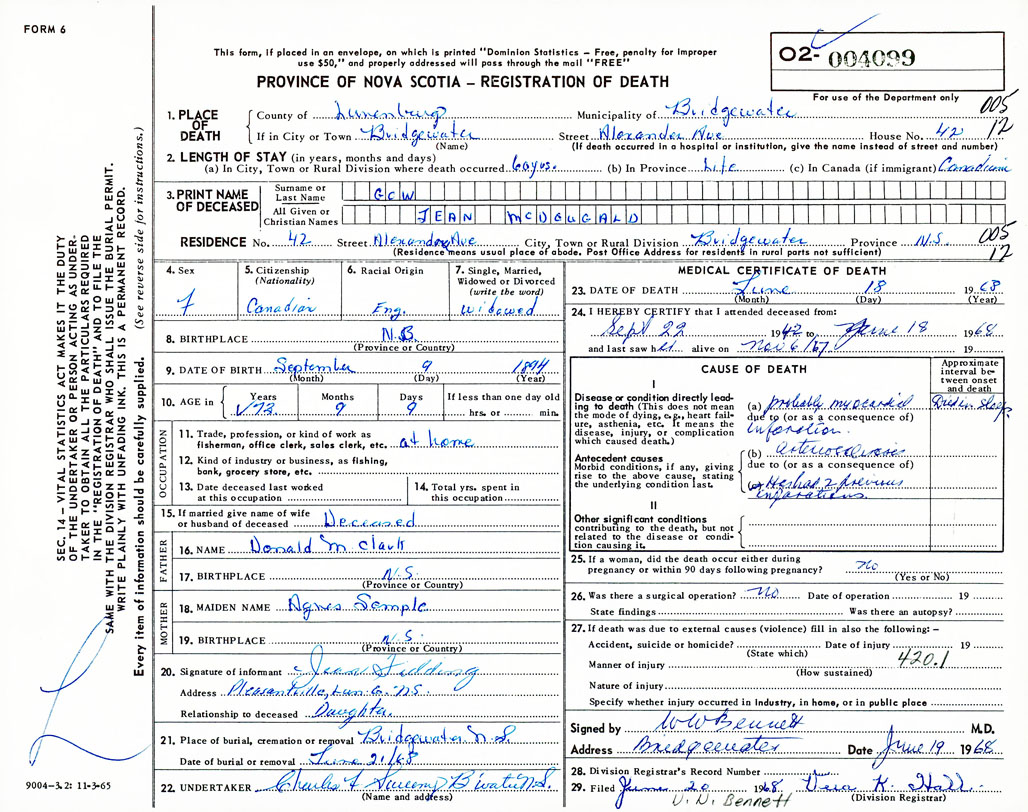 FORM 6
This form, if placed in an envelope, on which is printed "Dominion Statistics – Free, penalty for improper
use $50," and properly addressed will pass through the mail "FREE"
PROVINCE OF NOVA SCOTIA – REGISTRATION OF DEATH
O2- 004099
For use of the Department only
005
12
1. PLACE OF DEATH
County of Lunenburg Municipality of Bridgewater
If in City or Town Bridgewater Street Alexandra Ave House No. 42
(Name) (If death occurred in a hospital or institution, give the name instead of street and number)
2. LENGTH OF STAY (in years, months and days)
(a) In City, Town or Rural Division where death occurred 60 yrs. (b) In Province Life (c) In Canada (if immigrant) Canadian
3. PRINT NAME OF DECEASED
Surname or Last Name GOW
All Given or Christian Names JEAN McDOUGALD
RESIDENCE No. 42 Street Alexandra Ave City, Town or Rural Division Bridgewater Province N.S.
(Residence means usual place of abode. Post Office Address for residents in rural parts not sufficient)
005
12
4. Sex
f
5. Citizenship
(Nationality)
Canadian
6. Racial Origin
Eng.
7. Single, Married,
Widowed or Divorced
(write the word)
Widowed
8. BIRTHPLACE N.B.
(Province or Country)
9. DATE OF BIRTH September 9 1894
(Month) (Day) (Year)
10. AGE in Years 73 Months 9 Days 9 If less than one day old
hrs. or min.
OCCUPATION
11. Trade, profession, or kind of work as
fisherman, office clerk, sales clerk, etc. at home
12. Kind of industry or business, as fishing,
bank, grocery store, etc.
13. Date deceased last worked
at this occupation
14. Total yrs. spent in
this occupation
15. If married give name of wife
or husband of deceased Deceased
FATHER
16. NAME Donald M. Clark
17. BIRTHPLACE N.S.
(Province or Country)
MOTHER
18. MAIDEN NAME Agnes Semple
19. BIRTHPLACE N.S.
(Province or Country)
20. Signature of informant Jean Fielding
Address Pleasantville, Lun. Co. N.S.
Relationship to deceased Daughter
21. Place of burial, cremation or removal Bridgewater N.S.
Date of burial or removal June 21/68
22. UNDERTAKER Charles F Sweeny B'water N.S.
(Name and address)
MEDICAL CERTIFICATE OF DEATH
23. DATE OF DEATH June 18 1968
(Month) (Day) (Year)
24. I HEREBY CERTIFY that I attended deceased from:
Sept 22 1942 to June 18 1968
and last saw her alive on Nov 6/67 19
CAUSE OF DEATH
Approximate
interval be-
tween onset
and death
I
Disease or condition directly lead-
ing to death (This does not mean
the mode of dying, e.g., heart fail-
ure, asthenia, etc. It means the
disease, injury, or complication
which caused death.)
(a) probably myocardial Died in Sleep
due to (or as a consequence of)
infarction.
Antecedent causes
Morbid conditions, if any, giving
rise to the above cause, stating
the underlying condition last.
(b) arteriosclerosis
due to (or as a consequence of)
(c) He had 2 previous
infarctions.
II
Other significant conditions
contributing to the death, but not
related to the disease or condi-
tion causing it.
25. If a woman, did the death occur either during
pregnancy or within 90 days following pregnancy? no
(Yes or No)
26. Was there a surgical operation? no Date of operation 19
State findings Was there an autopsy?
27. If death was due to external causes (violence) fill in also the following: –
Accident, suicide or homicide? Date of injury 19
(State which)
420.1
Manner of injury
(How sustained)
Nature of injury
Specify whether injury occurred in industry, in home, or in public place
Signed by W W Bennett M.D.
Address Bridgewater Date June 19 1968
28. Division Registrar's Record Number
29. Filed June 20 1968 Vera K. Hall
(Division Registrar)
V. D. Bennett
SEC. 14 – VITAL STATISTICS ACT MAKES IT THE DUTY
OF THE UNDERTAKER OR PERSON ACTING AS UNDER-
TAKER TO OBTAIN ALL THE PARTICULARS REQUIRED
IN THE "REGISTRATION OF DEATH" AND TO FILE THE
SAME WITH THE DIVISION REGISTRAR WHO SHALL ISSUE THE BURIAL PERMIT.
WRITE PLAINLY WITH UNFADING INK. THIS IS A PERMANENT RECORD.
Every item of information should be carefully supplied. (See reverse side for instructions.)
9004-3.2: 11-3-65